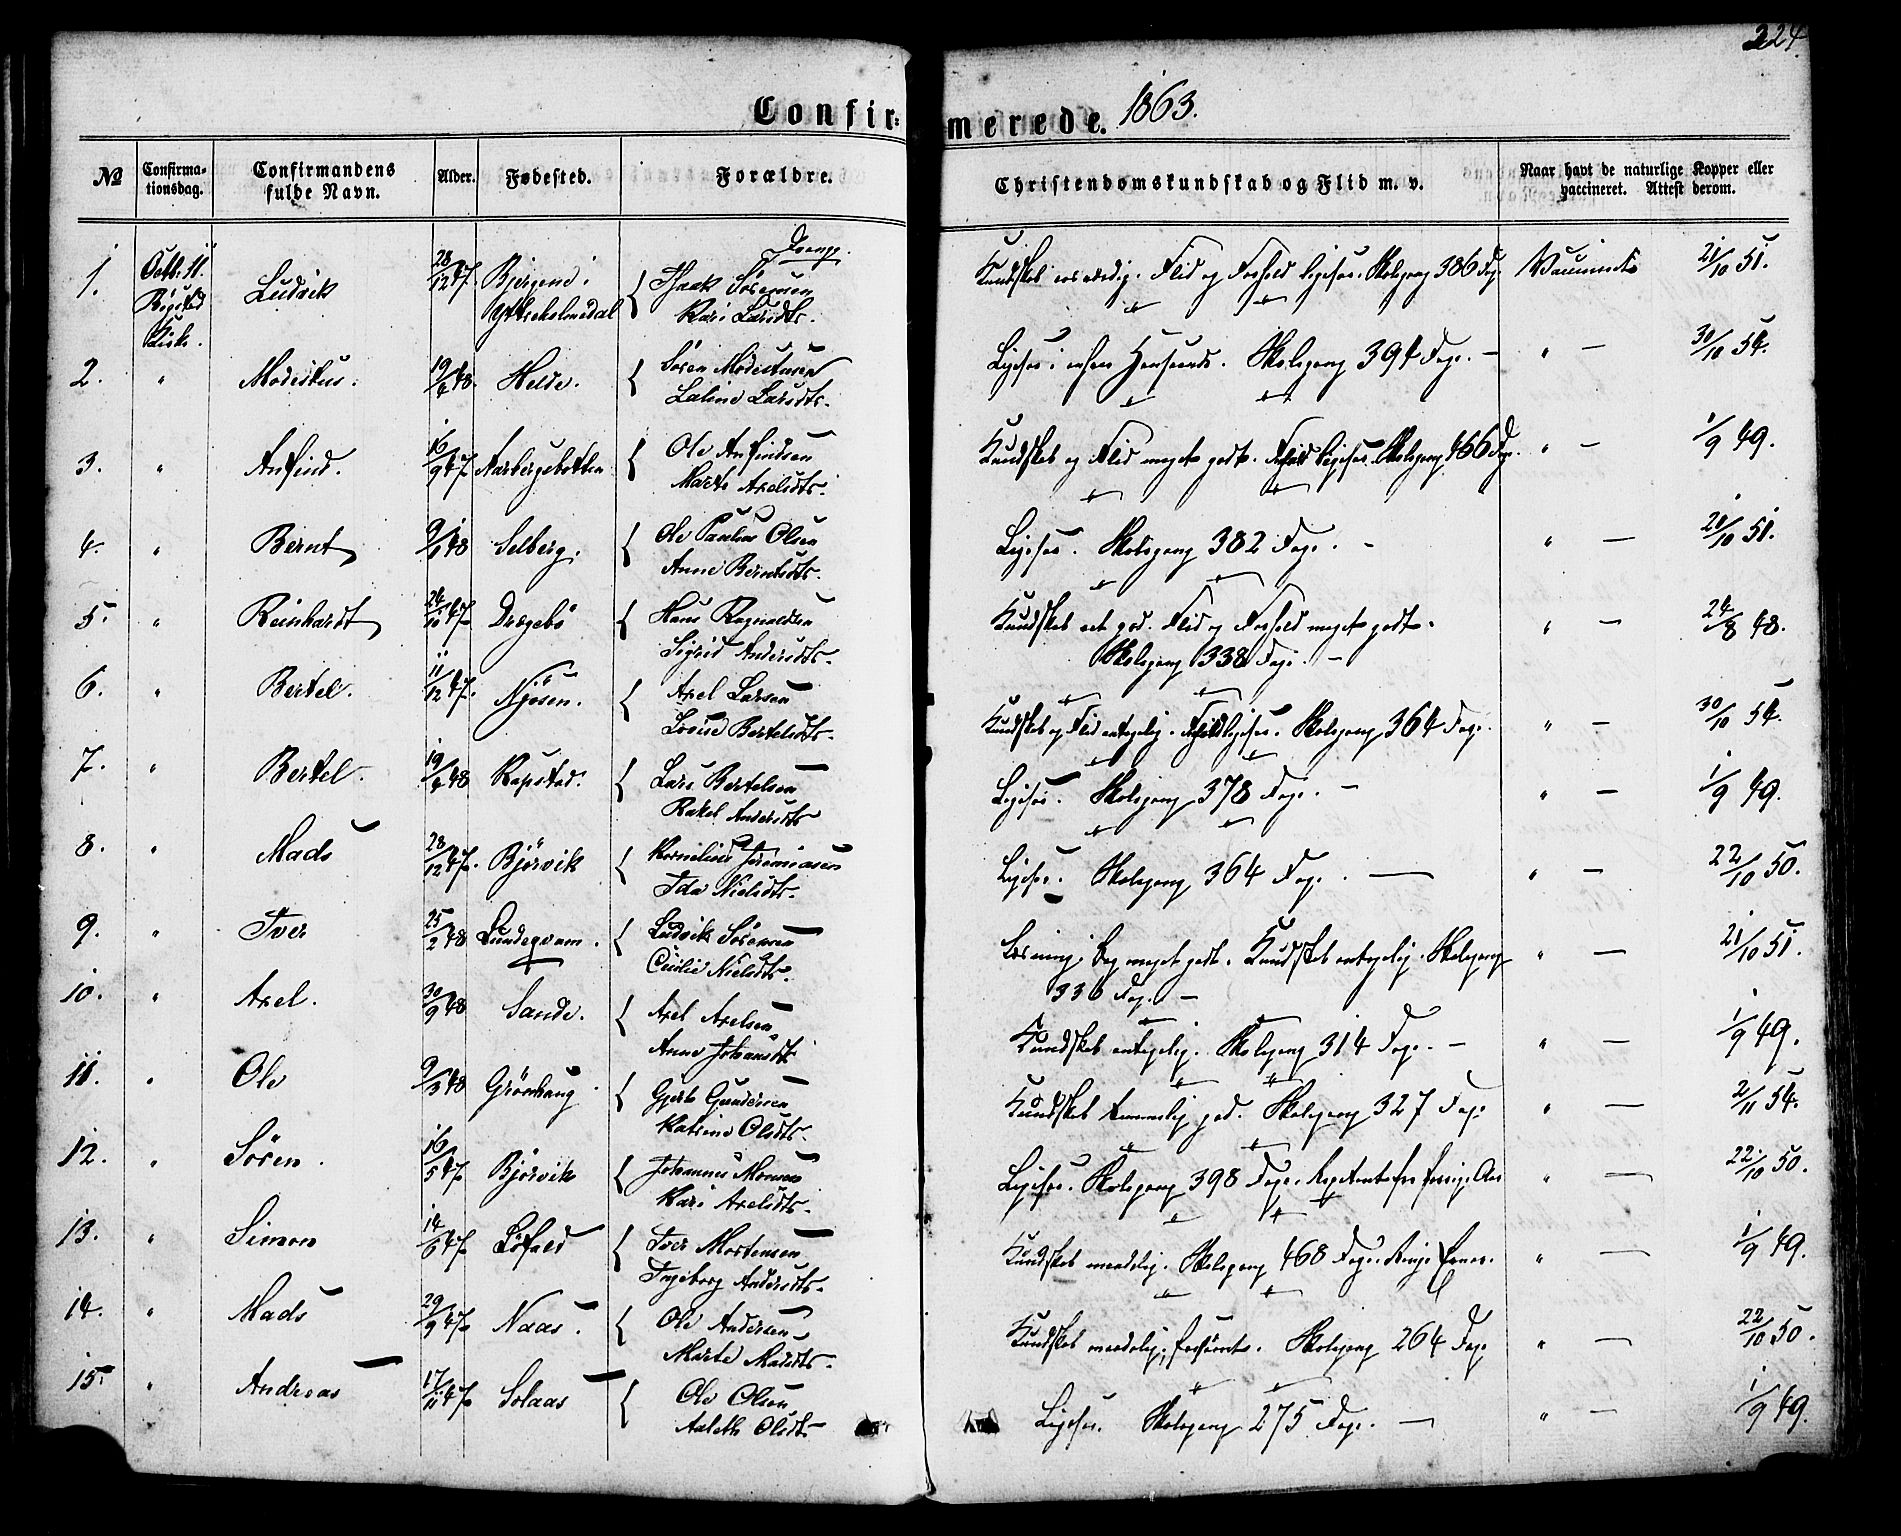 224.
Confirmerede. 1863.
№ Confirmationsdag. Confirmandens fulde Navn. Alder. Fødested. Forældre. Christendomskundskab og Flid m. v. Naar havt de naturlige Kopper eller vaccineret. Attest derom.
Drenge.
1. Octb. 11. Ludvik 28/12 47. Bjergene i Yttreholmedal { Isaak Sörensen Flid og Forhold ligesaa. Skolegang 386 Dage 21/10 51.
Kirke. Kari Larsdtr.
2. " Modestus. 19/6 48. Helde. { Sören Modestusen Skolegang 394 Dage. — " — 30/10 54.
Larsdtr.
3. " Anfind. 16/9 47. { Ole Anfindsen Kundskab og Flid meget godt. Forhold ligesaa. Skolegang 466 Dge. " — 1/9 49.
Marte Axelsdtr.
4. " Bernt 9/1 48 Selberg. { Ole Paulus Olsen Ligesaa. Skolegang 382 Dage. — " — 21/10 51.
Anne Berntsdtr.
5. " Reinhardt 24/10 47. Dragebö { Hans Ragnaldsen Kundskab god. Flid og Forhold meget godt. " — 24/8 48.
Sigrid Andersdtr. Skolegang 338 Dage. —
6. " Bertel. 11/12 47. Njösen. { Axel Larsen Kundskab og Flid Forhold ligesaa. Skolegang 364 Dage. " — 30/10 54.
Lovise Bertelsdtr.
7. " Bertel. 19/6 48 Rapstad. { Lars Bertelsen Ligesaa. Skolegang 378 Dage. — " — 1/9 49.
Rakel Andersdtr
8. " Mads 28/12 47. Björvik { Kornelius Jeremiasen Ligesaa. Skolegang 364 Dage. — " — 22/10 50.
Ida Nielsdtr.
9. " Iver 25/2 48 Lundeqvam. { Ludvik Sörensen Læsning i Bog meget godt. Kundskab Skolegang " — 21/10 51.
Cicilie Nielsdtr. 330 Dag. —
10. " Axel. 30/9 48 Sande. { Axel Axelsen Kundskab Skolegang 314 Dage. — " — 1/9 49.
Anne Johansdtr
11. " Ole 9/3 48 Grönhaug. { Gjert Gundersen Kundskab temmelig god. Skolegang 327 Dage " — 2/11 54.
Katrine Olsdtr.
12. " Sören. 16/5 47 Björvik { Johannes Monsen Ligesaa. Skolegang 398 Dage. " — 22/10 50.
Kari Axelsdtr.
13. " Simon 14/6 47 Löfald { Iver Mortensen Kundskab maadelig. Skolegang 468 Dage. Ringe " — 1/9 49.
Ingeborg Andersdtr.
14. " Mads 29/9 47 Naas. { Ole Andersen Kundskab maadelig; forsömt. Skolegang 264 Dage " — 22/10 50.
Marte Madsdtr.
15. " Andreas 17/11 47 Solaas { Ole Olsen Ligesaa. Skolegang 275 Dage. — " — 1/9 49.
Olsdtr.